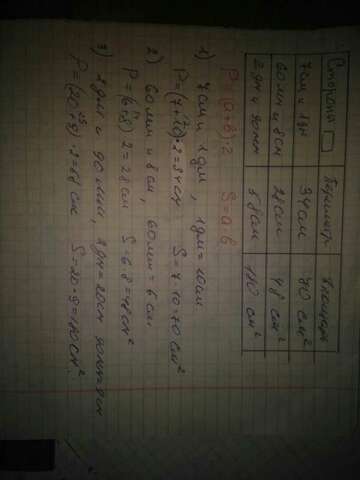 Стороны □ Периметр Площадь
7см и 1дм 34см 70 см²
60 мм и 8см 28см 48 см²
2 дм и 90мм 58см 180 см²
P=(a+b)·2 S=a·b
1) 7см и 1дм, 1дм=10см
P=(7+10)·2=34см S=7·10=70см²
2) 60мм и 8см, 60мм=6см
P=(6+8)·2=28см S=6·8=48см²
3) 2дм и 90мм, 2дм=20см 90мм=9см
P=(20+9)·2=58 см S=20·9=180см²